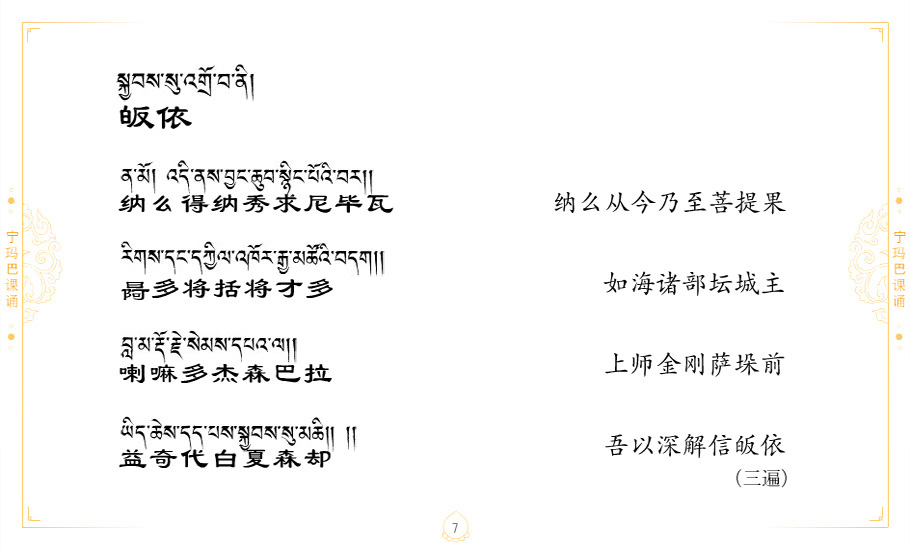 སྐྱབས་སུ་འགྲོ་བ་ནི།
皈依
ན་མོ། འདི་ནས་བྱང་ཆུབ་སྙིང་པོའི་བར།།
纳么得纳秀求尼毕瓦
纳么从今乃至菩提果
རིགས་དང་དཀྱིལ་འཁོར་རྒྱ་མཚོའི་བདག།
噶多将括将才多
如海诸部坛城主
བླ་མ་རྡོ་རྗེ་སེམས་དཔའ་ལ།།
喇嘛多杰森巴拉
上师金刚萨垛前
ཡིད་ཆེས་དད་པས་སྐྱབས་སུ་མཆི།། །།
益奇代白夏森却
吾以深解信皈依
(三遍)
宁玛巴课诵
宁玛巴课诵
7